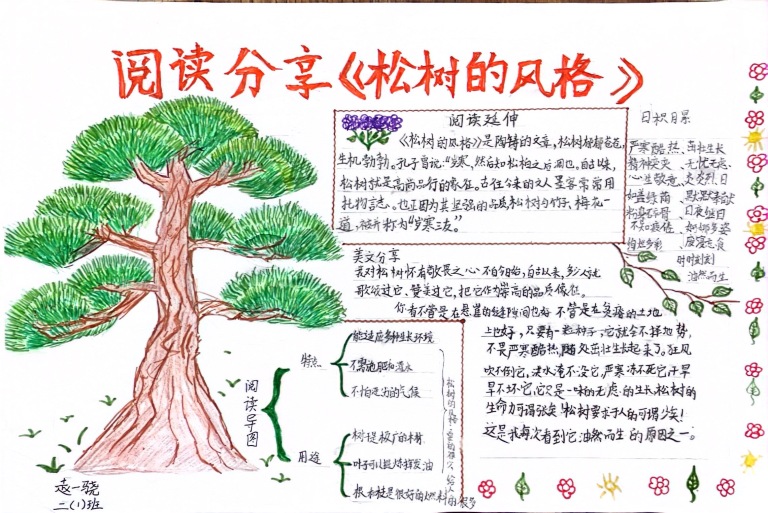 阅读分享《松树的风格》
阅读延伸
《松树的风格》是陶铸的文章，松树郁郁苍苍，
生机勃勃。孔子曾说："岁寒，然后知松柏之后凋也。自古以来，
松树就是高尚品行的象征。古往今来的文人墨客常常用
托物言志。也正因为其坚强的品质松树与竹子、梅花一
道，被并称为"岁寒三友"。
日积月累
严寒酷热、茁壮生长
精神奕奕、无忧无虑、
心生敬意、炎炎烈日
如盖绿荫 默默无献
粉身碎骨 日夜继日
不知疲倦、婀娜多姿
绚丽多彩
时时刻刻
油然而生
美文分享
我对松树怀有敬畏之心不自今始，自古以来，多少人就
歌颂过它、赞美过它，把它作为崇高的品质象征。
你看不管是在悬崖的缝隙间也好 不管是在贫瘠的土地
上也好，只要有一粒种子，它就会不择地势，
不畏严寒酷热，随处茁壮生长起来了。狂风
吹不倒它，洪水淹不没它，严寒冻不死它，干旱
旱不坏它，它只是一味的无虑的生长，松树的
生命力可谓强矣！松树要求于人的可谓少矣！
这是我每次看到它油然而生的原因之一。
阅读导图
特点
能适应多种生长环境
不需施肥和灌水
不怕恶劣的气候
用途
树干是极广的木材
叶子可以提炼挥发油
根和枝是很好的燃料
松树的风格
二(1)班